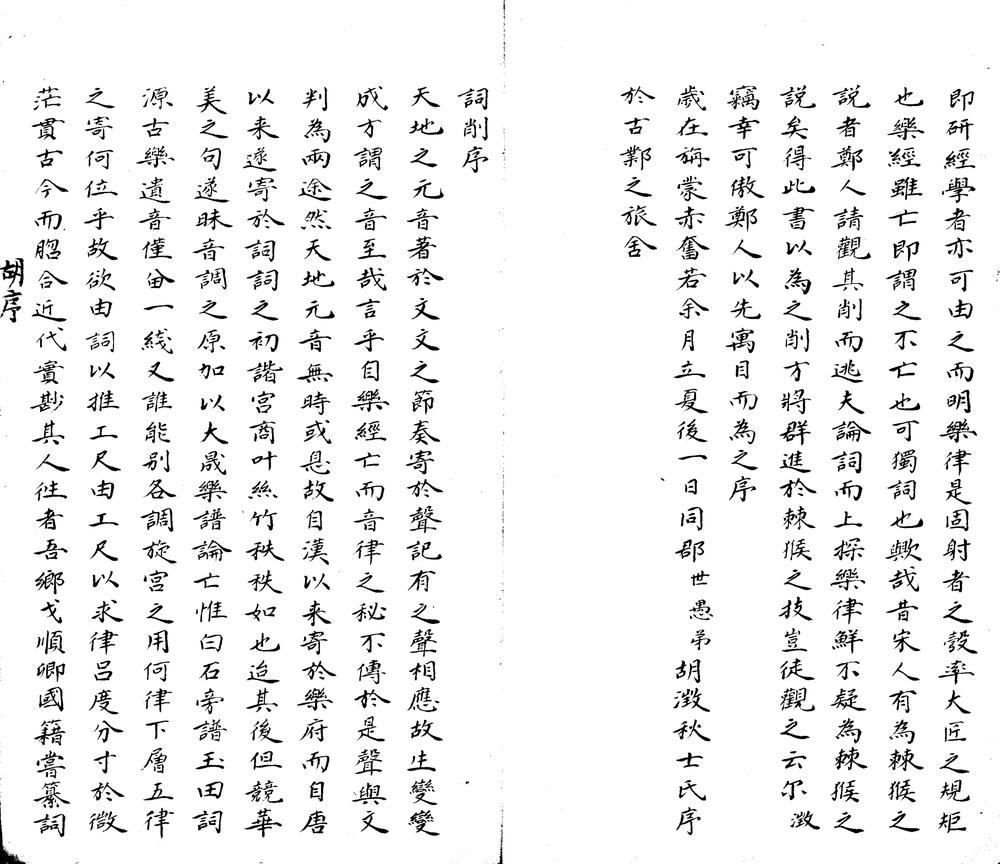 即研經學者亦可由之而明樂律是固射者之彀率大匠之規矩
也樂經雖亡即謂之不亡也可獨詞也歟哉昔宋人有為棘猴之
說者鄭人請觀其削而逃夫論詞而上探樂律鮮不疑為棘猴之
說矣得此書以為之削方將群進於棘猴之技豈徒觀之云尔澂
竊幸可傲鄭人以先寓目而為之序
歲在旃蒙赤奮若余月立夏後一日同郡世愚弟胡澂秋士氏序
於古鄴之旅舍
詞削序
天地之元音著於文文之節奏寄於聲記有之聲相應故生變變
成方謂之音至哉言乎自樂經亡而音律之秘不傳於是聲與文
判為兩途然天地元音無時或息故自漢以來寄於樂府而自唐
以来遂寄於詞詞之初諧宮商叶絲竹秩秩如也迨其後但競華
美之句遂昧音調之原加以大晟樂譜論亡惟白石旁譜玉田詞
源古樂遺音僅留一綫又誰能别各調旋宮之用何律下層五律
之寄何位乎故欲由詞以推工尺由工尺以求律呂度分寸於微
茫貫古今而脗合近代實尠其人徃者吾鄉戈順卿國籍嘗纂詞
胡序